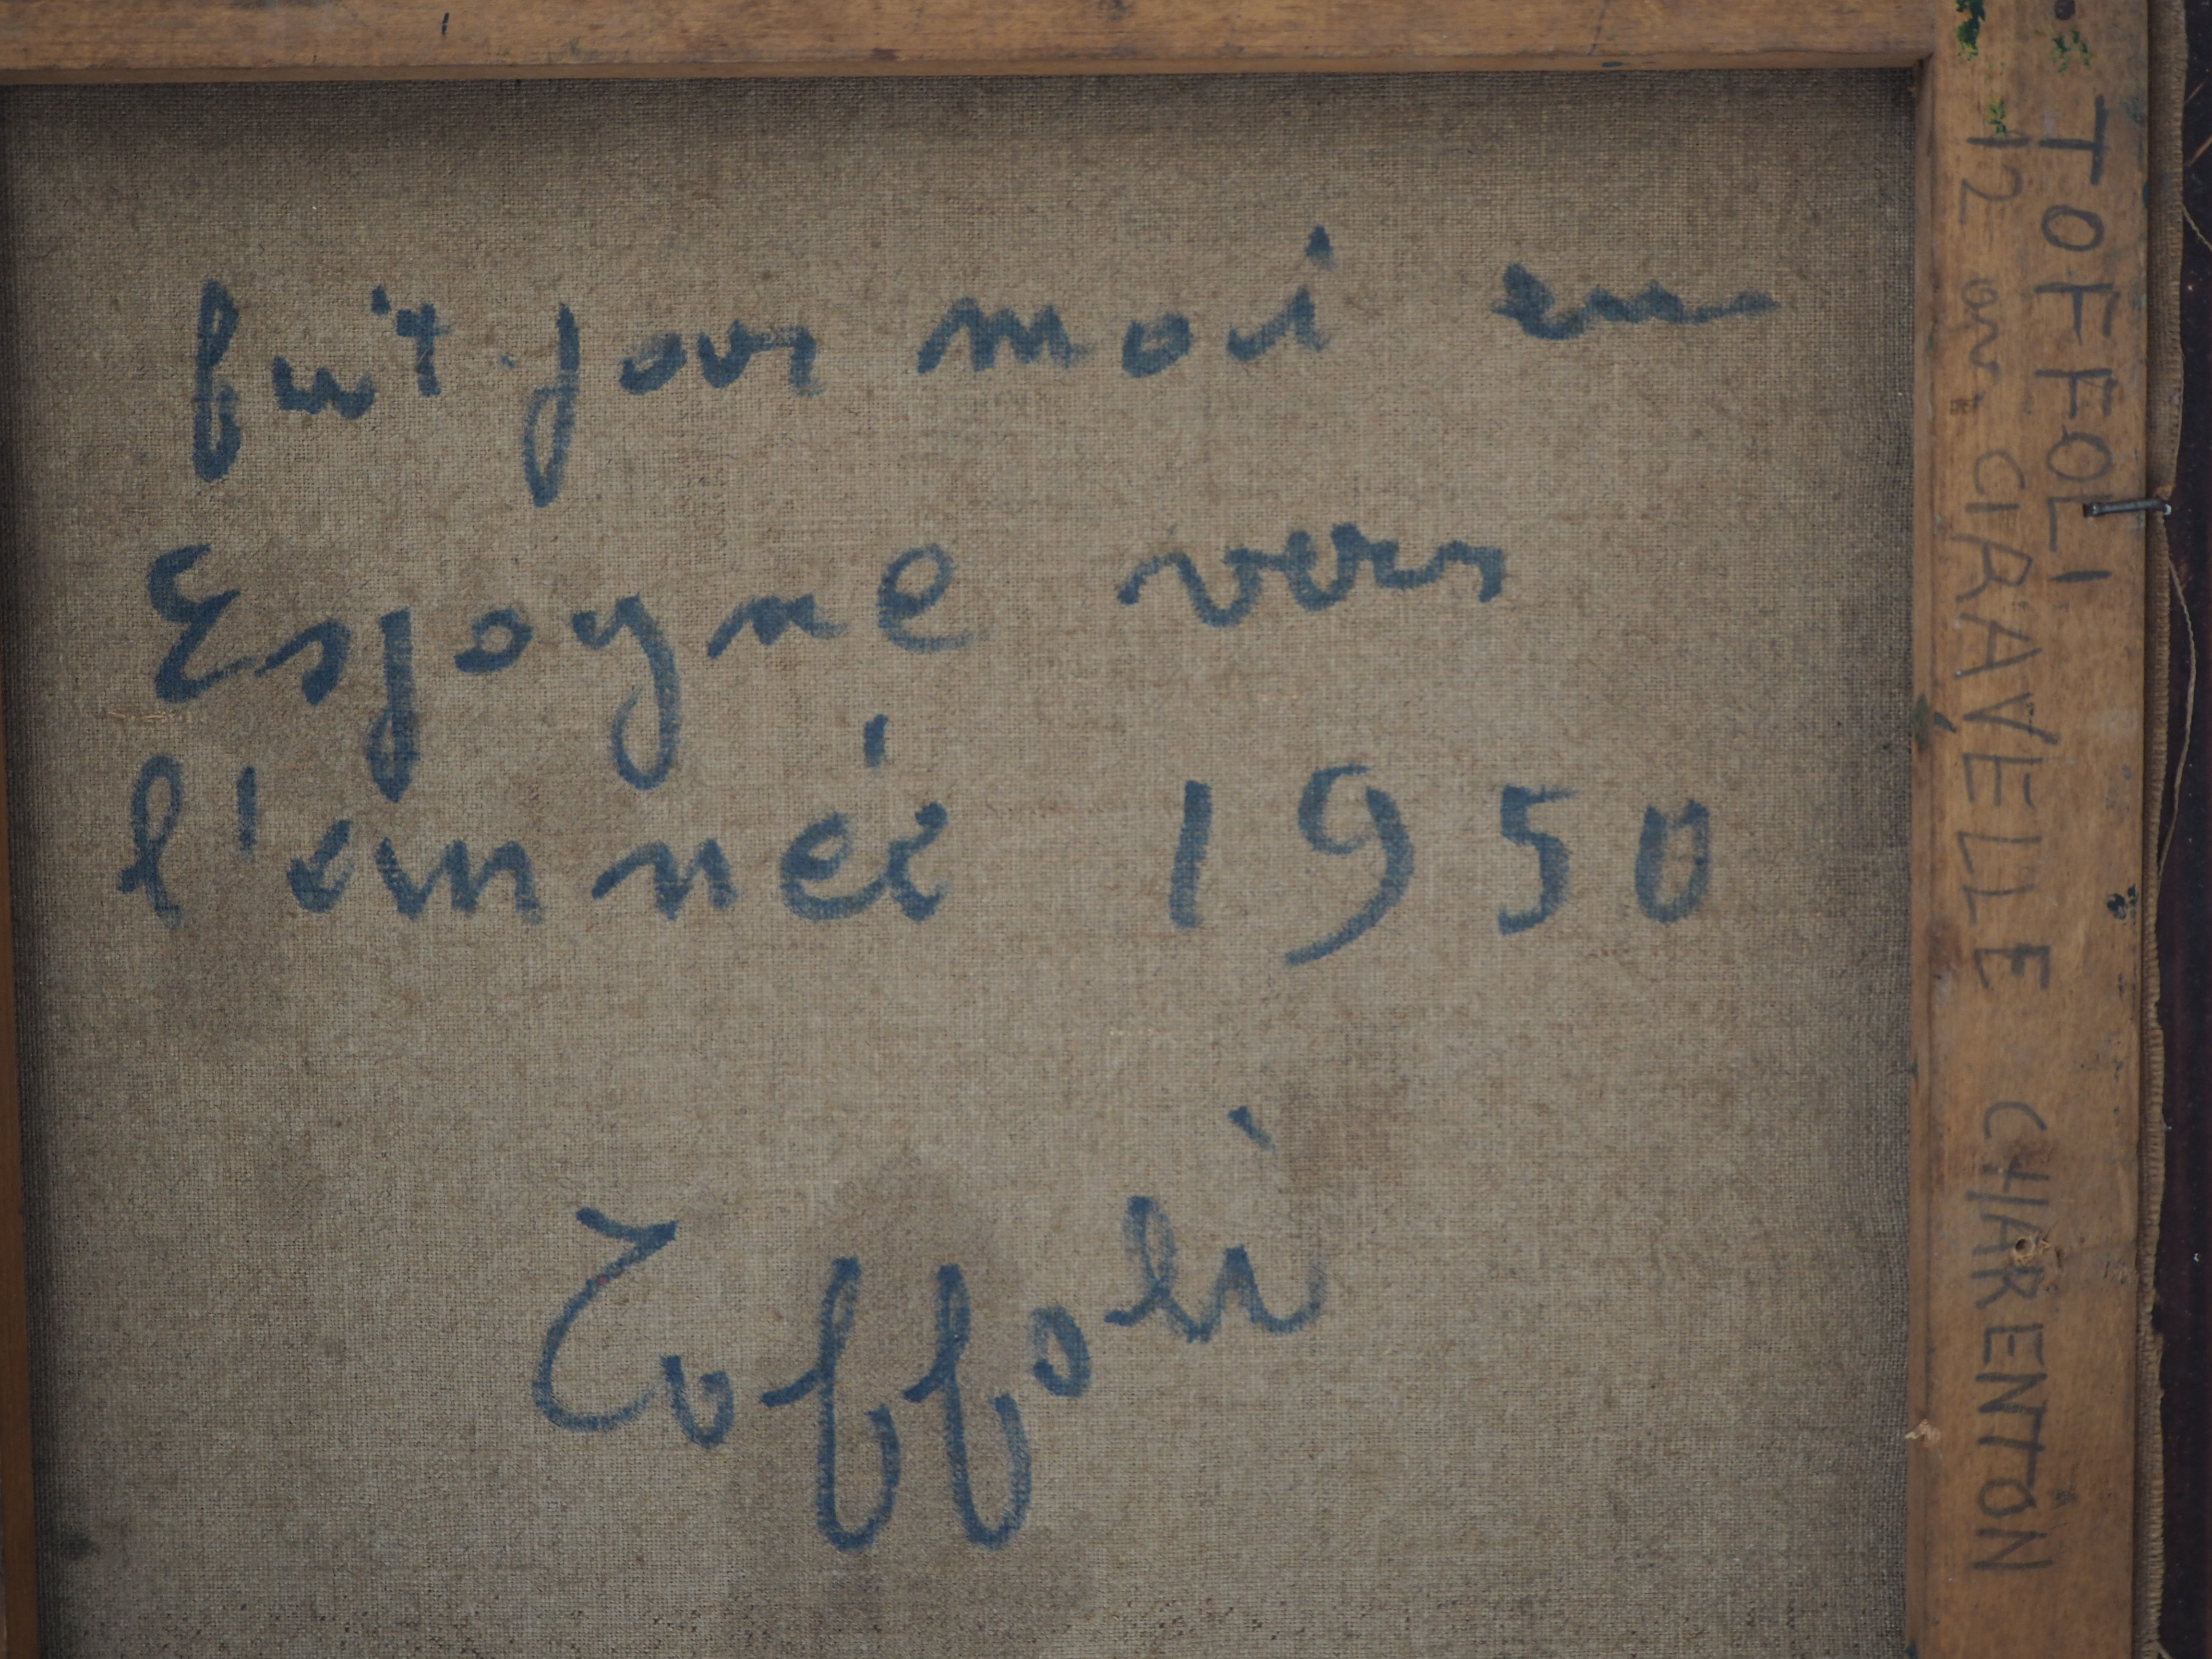 fait par moi en
Espagne vers
l'année 1950
Toffoli
TOFFOLI
12 GRAVELLE CHARENTON